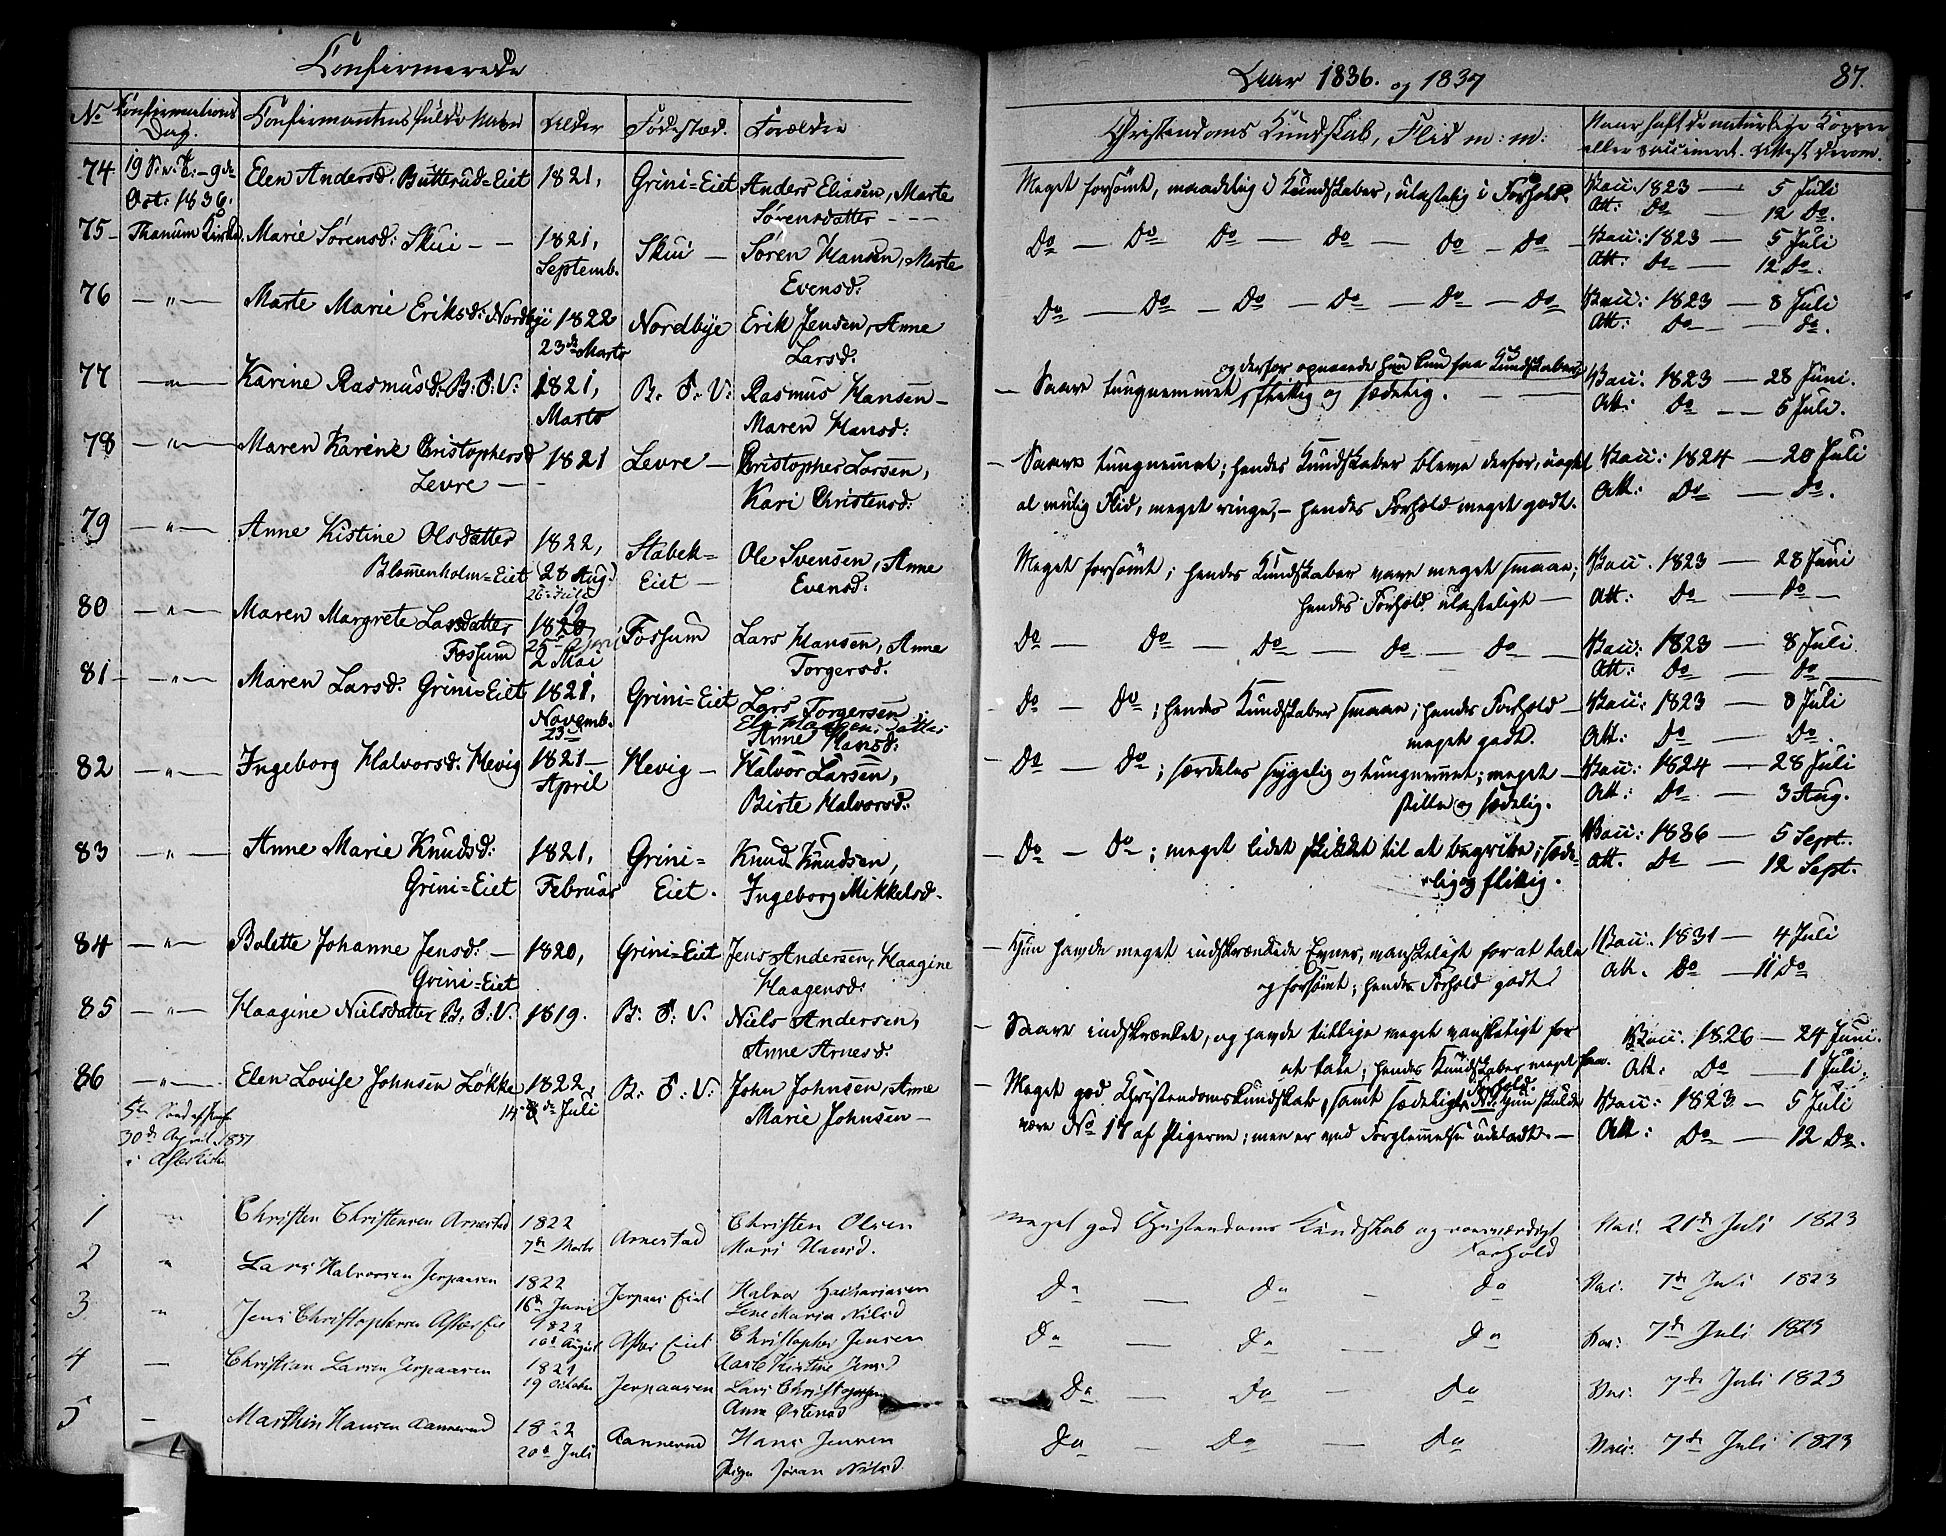 Confirmerede
Aar 1836. og 1837
87.
No Confirmations Dag. Confirmantens fulde Navn Alder Födestæd. Forældre Christendoms Kundskab, Flid m: m: Naar haft de naturlige Kopper
eller vaccineret. Attest derom.
74 19 S. e. T. - 9de Elen Andersd. Butterud=Eiet 1821, Grini=Eiet Anders Eliasen, Marte Meget forsömt, maadelig i Kundskaber, ulastelig i Forhold. Vacc. 1823 — 5 Juli
Oct: 1836. Sörensdatter - - - Att: Do — 12 Do.
75 - Thanum Kirke. Marie Sörensd: Skui - - 1821, Skui — Sören Hansen, Marte Do — Do Do — Do — Do - Do Vacc: 1823 — 5 Juli
Septemb. Evensd: Att. Do — 12 Do.
76 — " — Marte Marie Eriksd: Nordbye 1822 Nordbye Erik Jensen, Anne Do — Do — Do — Do — Do — Do Vacc: 1823 — 8 Juli
23de Marts Larsd. Att: Do — do.
77 — " — Karine Rasmusd. B: S: V: 1821, B. S. V: Rasmus Hansen - — Saare tungnemmet, flittig og sædelig. og derfor opnaaede hun kun faa Kundskaber, Vacc. 1823 — 28 Juni.
Marts Maren Hansd: Att: Do — 5 Juli.
78 — " — Maren Karine Christophersd 1821 Levre — Christopher Larsen, — Saare tungnemet; hendes Kundskaber bleve derfor, uagtet Vacc: 1824 — 20 Juli
Levre — Kari Christensd: al mulig Flid, meget ringe, - hendes Forhold meget godt. Att: Do — Do.
79 — " — Anne Kistine Olsdatter 1822, Stabek= Ole Svensen, Anne Meget forsömt; hendes Kundskaber vare meget smaae; Vacc. 1823 — 28 Juni
Blommenholm=Eiet 28 Aug. Eiet — Evensd: hendes Forhold ulasteligt — Att: Do — Do —
80 — " — Maren Margrete Larsdatter 1820 Fossum Lars Hansen, Anne Do — Do — Do — Do — Do — Vacc: 1823 — 8 Juli
Fossum 2 Mai Torgersd. Att: Do — Do
81 - — " — Maren Larsd. Grini=Eiet 1821, Grini=Eiet Lars Torgersen - Do — Do; hendes Kundskaber smaae; hendes Forhold — Vacc: 1823 — 8 Juli
Novemb. 23 Anne Hansd: meget godt. Att: Do — Do.
82 — " — Ingeborg Halvorsd. Hevig 1821 - Hevig — Halvor Larsen, - Do — Do; særdeles sygelig og tungnemet; meget — Vacc: 1824 — 28 Juli
April Birte Halvorsd: stille og sædelig. Att: Do — 3 Aug.
83 — " — Anne Marie Knudsd: 1821, Grini= Knud Knudsen, - Do — Do; meget lidet skikket til at begribe; sæde- Vacc: 1836 — 5 Sept.
Grini=Eiet Februar Eiet. Ingeborg Mikkelsd. lig og flittig. Att. Do — 12 Sept.
84 — " — Bolette Johanne Jensd: — 1820, Grini=Eiet Jens Andersen, Haagine — Hun havde meget indskrænkede Evner, vanskeligt for at tale Vacc. 1831 — 4 Juli
Grini=Eiet Haagensd: og forsömt; hendes Forhold godt. Att. Do — 11 Do
85 — " — Haagine Nielsdatter B. S: V. 1819. B: S: V. Niels Andersen, — Saare indskrænket, og havde tillige meget vanskeligt for Vacc. 1826 — 24 Juni.
Anne Arnesd. at tale; hendes Kundskaber meget faae. Att: Do — 1 Juli.
86 — " — Elen Lovise Johnsen Lökke 1822, B: S: V: John Johnsen, Anne — Meget god Christendomskundskab, samt sædeligt Forhold. NB. Hun skulde Vacc: 1823 — 5 Juli
14de Juli Marie Johnsen — være No 17 af Pigerne; men er ved Forglemmelse udeladt. — Att: Do — 12 Do.
5te Sönd. af Paaske
30de April 1837
i Asker Kirke
1 " Christen Christensen Arnestad 1822 Arnestad Christen Olsen Meget god Christendoms Kundskab og roesværdigt Vac: 21de Juli 1823
7de Marts Mari Hansd. Forhold
2 " Lars Halvorsen Jerpaasen 1822 Jerpaas Eiet Halvor Zachariasen Do — Do - Do Vac: 7de Juli 1823
16de Juni Lene Maria Nilsd
3 " Jens Christophersen Asker Eie 1822 Asker Eiet Christopher Jensen Do — Do — Do Vac: 7de Juli 1823
10de August Kirstine Jensd
4 — Christian Larsen Jerpaasen 1821 Jerpaasen Lars Christophersen Do — Do — Do Vac: 7de Juli 1823
19 October Anne Östensd
5 — Marthin Hansen Aannerud 1822 Aannerud Hans Jensen Do — Do — Do Vac: 7de Juli 1823
20de Juli Pige Jöran Nilsd.